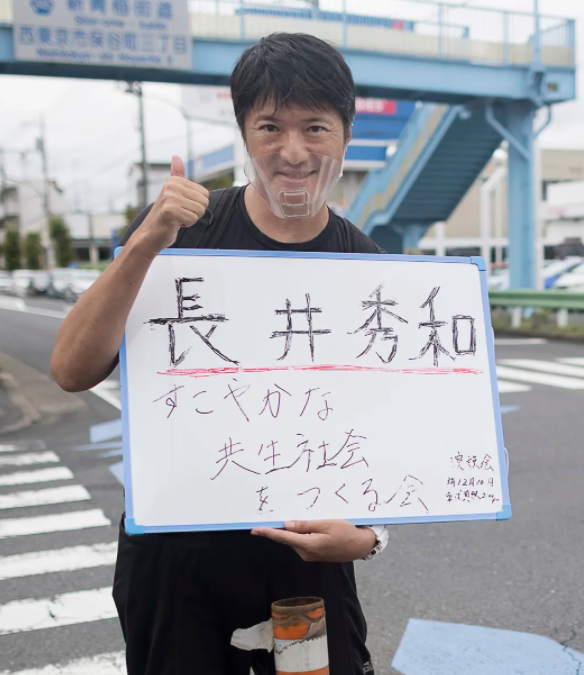 新青梅街道
西東京市保谷町三丁目
長井秀和
すこやかな
共生社会
をつくる会
演説会
12月10日